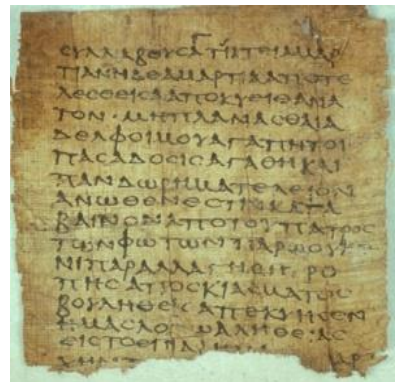 Γ
CΥΛΛΑΒΟΥCΑΤΙΚΤΕΙΑΜΑΡ
ΤΙΑΝΗΔΕΑΜΑΡΤΙΑΑΠΟΤΕ
ΛΕCΘΕΙCΑΑΠΟΚΥΕΙΘΑΝΑ
ΤΟΝ·ΜΗΠΛΑΝΑCΘΑΙΑ
ΔΕΛΦΟΙΜΟΥΑΓΑΠΗΤΟΙ
ΠΑCΑΔΟCΙCΑΓΑΘΗΚΑΙ
ΠΑΝΔΩΡΗΜΑΤΕΛΕΙΟΝ
ΑΝΩΘΕΝΕCΤΙΝΚΑΤΑ
ΒΑΙΝΟΝΑΠΟΤΟΥΠΑΤΡΟC
ΤΩΝΦΩΤΩΝΠΑΡΩΟΥΚΕ
ΝΙΠΑΡΑΛΛΑΓΗ
ΠΗCΑΠΟCΚΙΑCΜΑΤΟC
ΒΟΥΛΗΘΕΙCΑΠΕΚΥΗCΕΝ
ΗΜΑCΛΟΓΩΑΛΗΘΕΙΑC
ΕΙCΤΟΕΙΝΑΙ